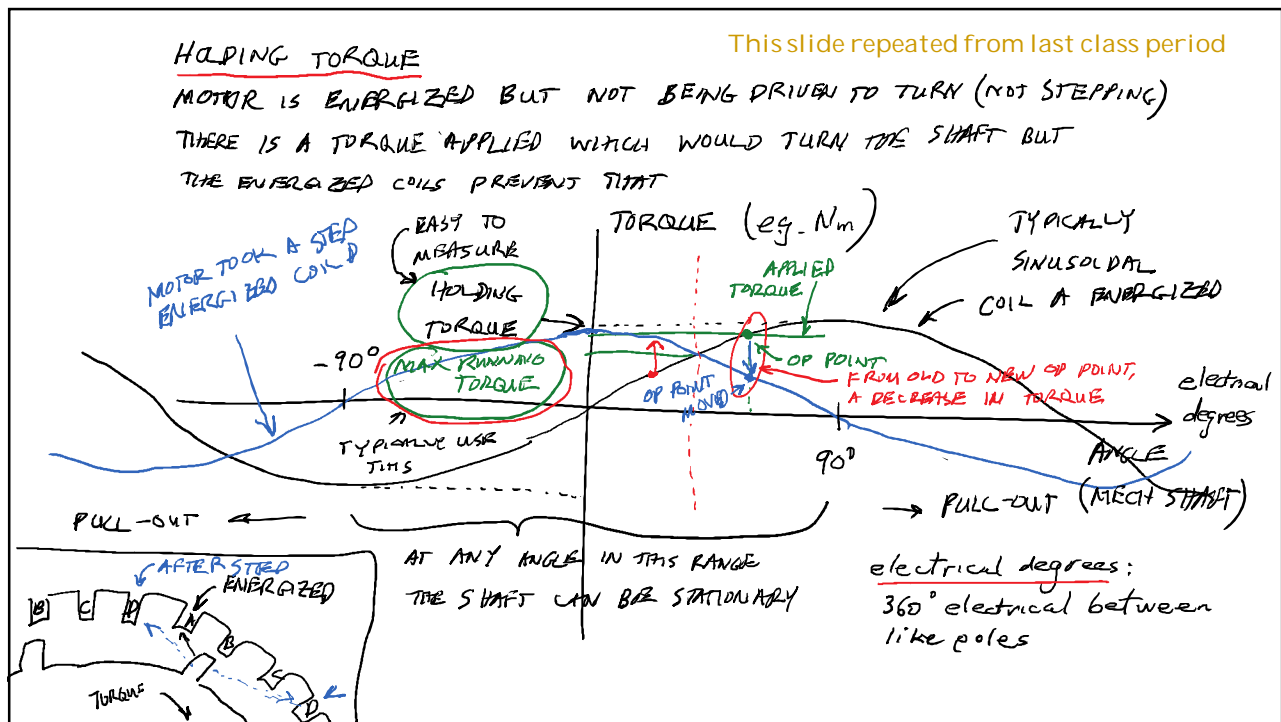 This slide repeated from last class period
HOLDING TORQUE
MOTOR IS ENERGIZED BUT NOT BEING DRIVEN TO TURN (NOT STEPPING)
THERE IS A TORQUE APPLIED WHICH WOULD TURN THE SHAFT BUT
THE ENERGIZED COILS PREVENT THAT
MOTOR TOOK A STEP
ENERGIZED COIL D
EASY TO
MEASURE
HOLDING
TORQUE
MAX RUNNING
TORQUE
TYPICALLY USE
THIS
-90°
TORQUE (eg. Nm)
APPLIED
TORQUE
TYPICALLY
SINUSOIDAL
COIL A ENERGIZED
OP POINT
OP POINT
MOVED
FROM OLD TO NEW OP POINT,
A DECREASE IN TORQUE
electrical
degrees
90°
ANGLE
(MECH SHAFT)
PULL-OUT
PULL-OUT
AT ANY ANGLE IN THIS RANGE
THE SHAFT CAN BE STATIONARY
electrical degrees:
360° electrical between
like poles
AFTER STEP
ENERGIZED
B C D A B C D
TORQUE